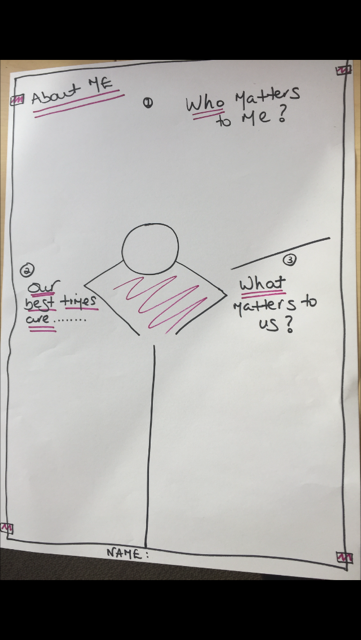 About ME
① Who Matters
to Me?
②
Our
best times
are........
③
What
matters to
us?
NAME: